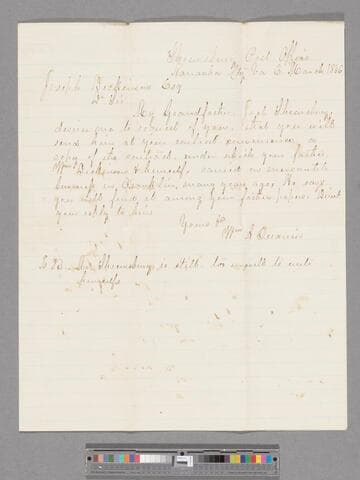 Shrewsbury Post Office
Kanawha Cty Va 3 March 1856
Joseph Dickinson Esq
Dr Sir
My Grandfather Joel Shrewsbury
desires me to request of you, that you will
send him at your earliest convenience a
copy of the contract, under which your father,
Wm Dickinson & himself, carried on mercantile
business in Franklin, many years ago. He says
you will find it among your father's papers. Direct
your reply to him
Yours &c
Wm A Quarrier
P.S. Mr Shrewsbury is still too unwell to write
himself